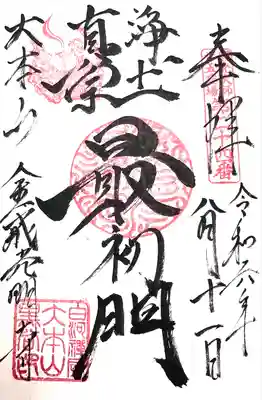 奉拝
令和六年
八月十一日
浄土
真宗
最初門
大本山
金戒光明寺
白河禅房
大本山